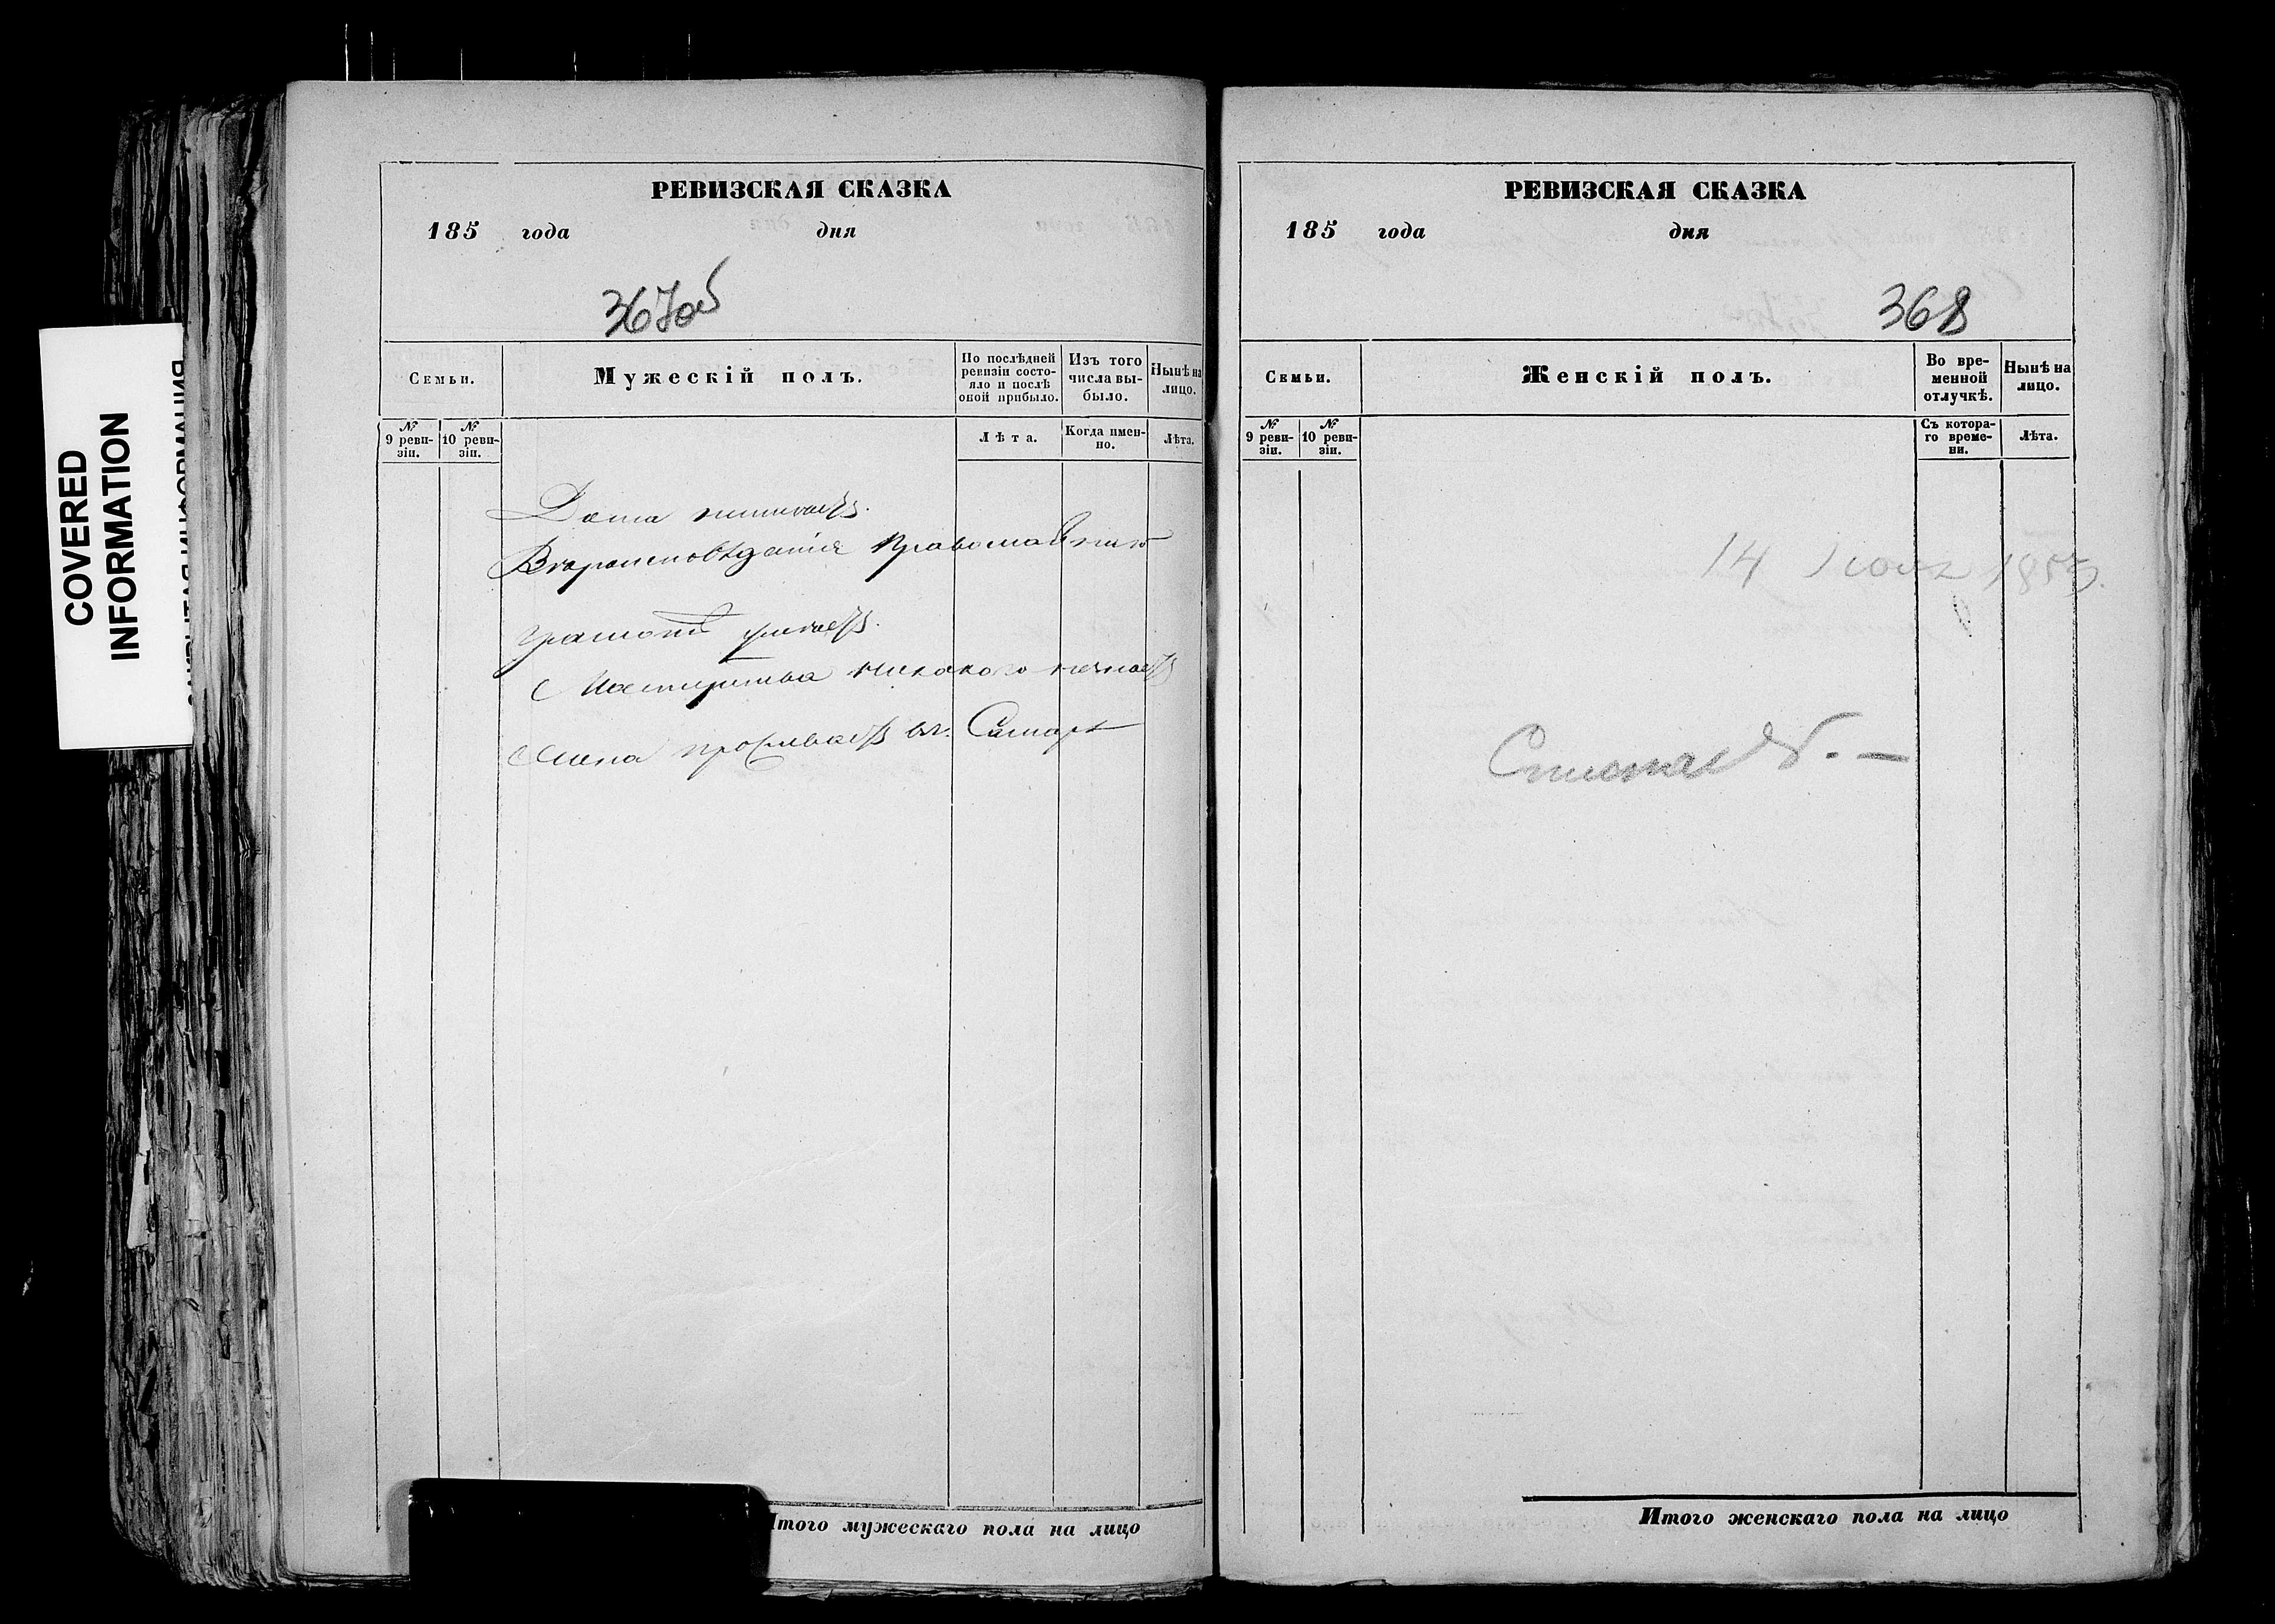 COVERED
INFORMATION
РЕВИЗСКАЯ СКАЗКА
185 года дня
367об
Семьи.
Мужескій полъ.
По послѣдней ревизіи состояло и послѣ оной прибыло.
Изъ того числа выбыло.
Нынѣ на лицо.
№ 9 ревизіи.
№ 10 ревизіи.
Лѣта.
Когда именно.
Лѣта.
Дома неимеетъ.
Вероисповѣданія Православнаго
Грамотѣ умеетъ.
Мастерства никакого незнаетъ
Жена проживаетъ в г. Самарѣ
Итого мужескаго пола на лицо
РЕВИЗСКАЯ СКАЗКА
185 года дня
368
Семьи.
Женскій полъ.
Во временной отлучкѣ.
Нынѣ на лицо.
№ 9 ревизіи.
№ 10 ревизіи.
Съ котораго времени.
Лѣта.
14 1853.
Итого женскаго пола на лицо